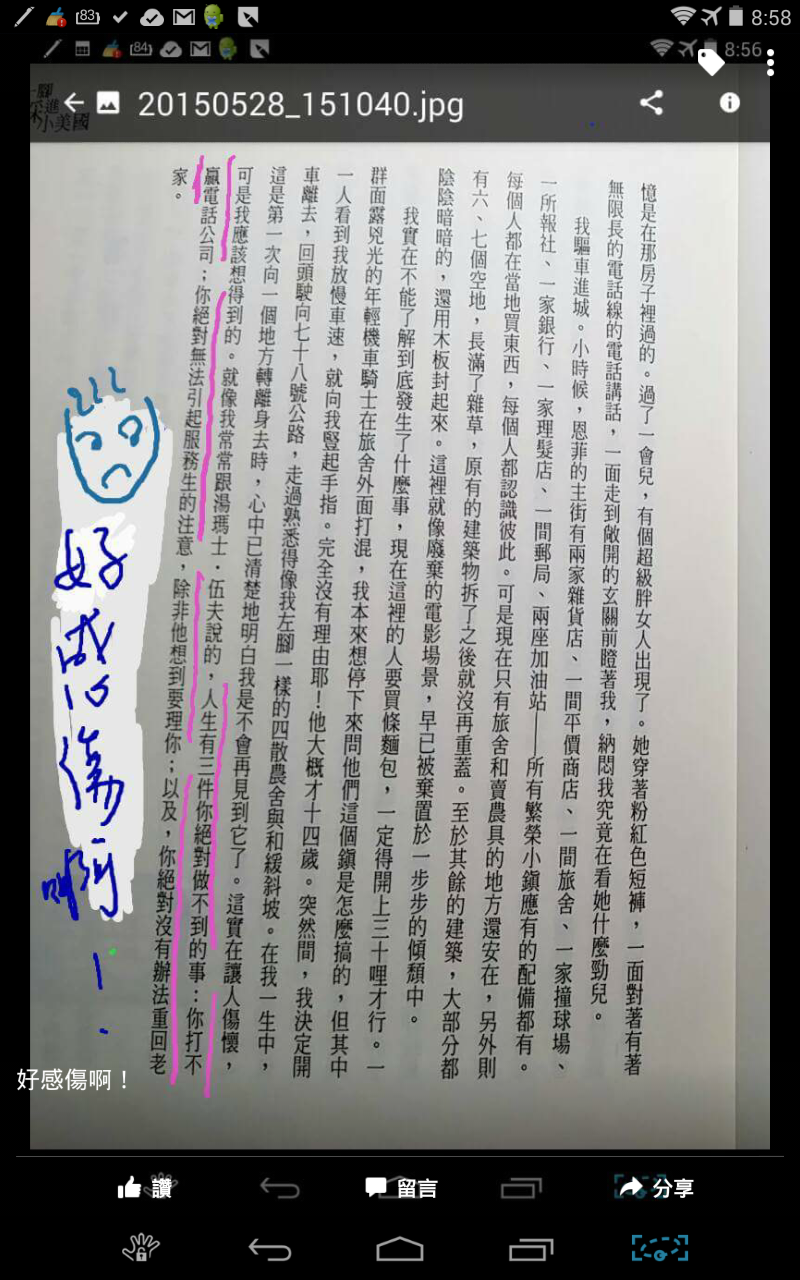 (83)
8:58
(84)
8:56
一腳
踩進
小美國
20150528_151040.jpg
憶是在那房子裡過的。過了一會兒，有個超級胖女人出現了。她穿著粉紅色短褲，一面對著有著
無限長的電話線的電話講話，一面走到敞開的玄關前瞪著我，納悶我究竟在看她什麼勁兒。
我驅車進城。小時候，恩菲的主街有兩家雜貨店、一間平價商店、一間旅舍、一家撞球場、
一所報社、一家銀行、一家理髮店、一間郵局、兩座加油站——所有繁榮小鎮應有的配備都有。
每個人都在當地買東西，每個人都認識彼此。可是現在只有旅舍和賣農具的地方還安在，另外則
有六、七個空地，長滿了雜草，原有的建築物拆了之後就沒再重蓋。至於其餘的建築，大部分都
陰陰暗暗的，還用木板封起來。這裡就像廢棄的電影場景，早已被棄置於一步步的傾頹中。
我實在不能了解到底發生了什麼事，現在這裡的人要買條麵包，一定得開上三十哩才行。一
群面露兇光的年輕機車騎士在旅舍外面打混，我本來想停下來問他們這個鎮是怎麼搞的，但其中
一人看到我放慢車速，就向我豎起手指。完全沒有理由耶！他大概才十四歲。突然間，我決定開
車離去，回頭駛向七十八號公路，走過熟悉得像我左腳一樣的四散農舍與和緩斜坡。在我一生中，
這是第一次向一個地方轉離身去時，心中已清楚地明白我是不會再見到它了。這實在讓人傷懷，
可是我應該想得到的。就像我常常跟湯瑪士．伍夫說的，人生有三件你絕對做不到的事：你打不
贏電話公司；你絕對無法引起服務生的注意，除非他想到要理你；以及，你絕對沒有辦法重回老
家。
好感傷啊！
好感傷啊！
讚
留言
分享